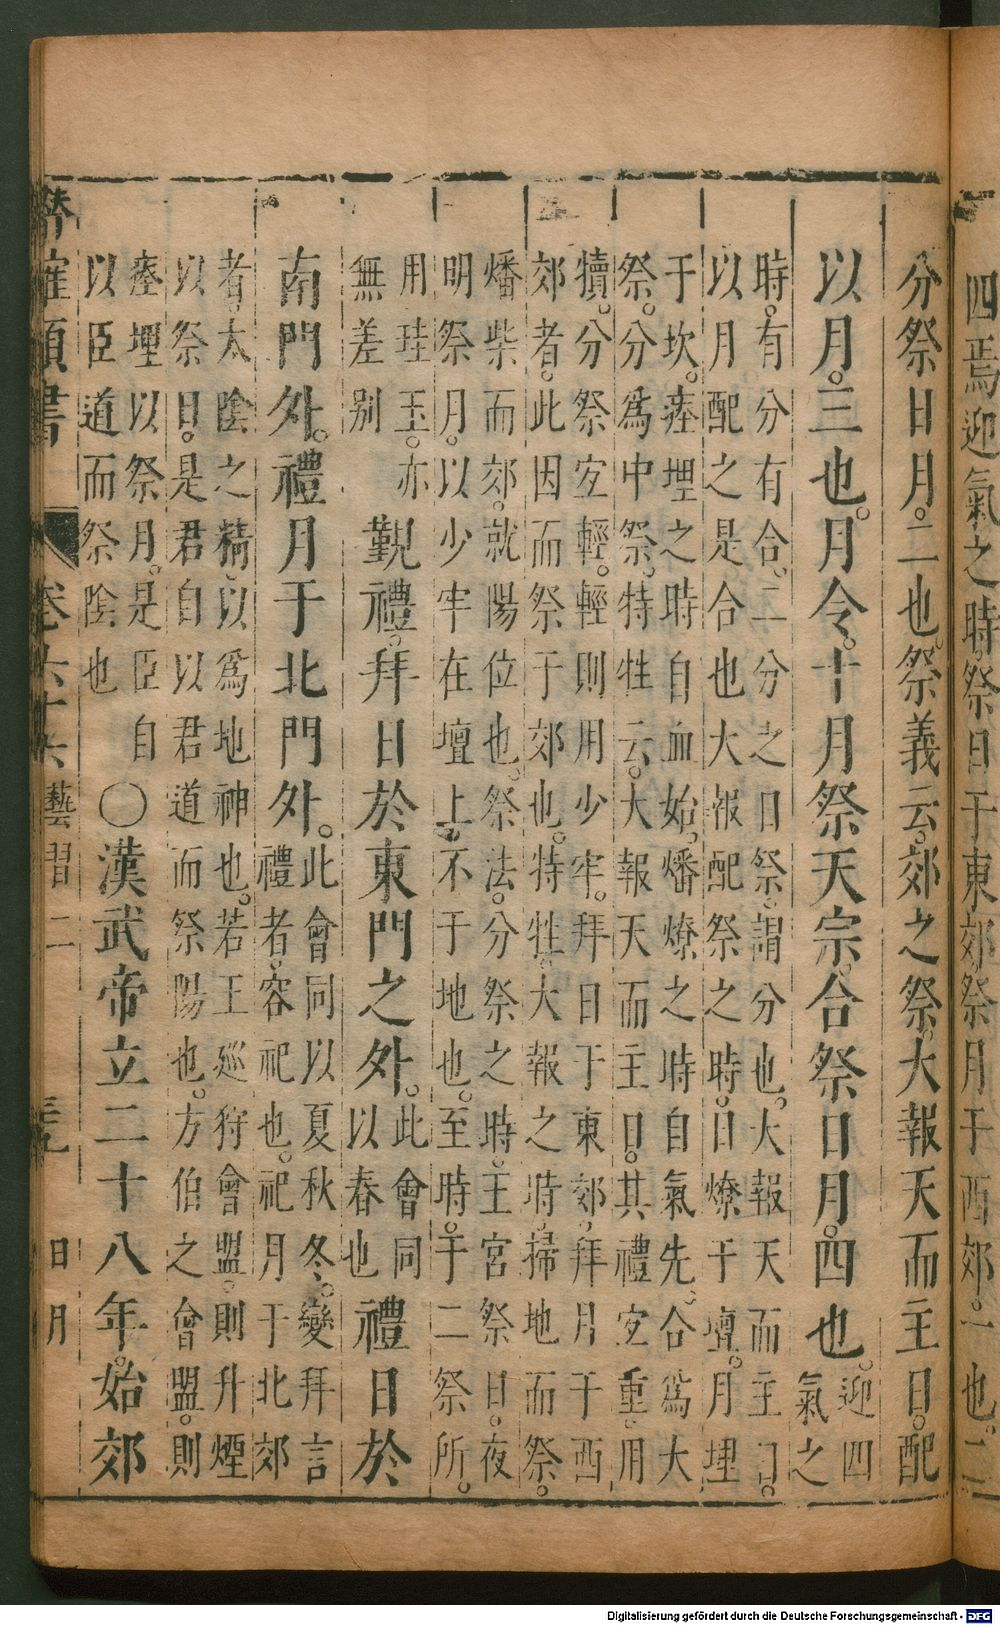 四焉迎氣之時祭日于東郊祭月于西郊一也二
分祭日月二也祭義云郊之祭大報天而主日配
以月三也月令十月祭天宗合祭日月四也迎四
氣之
時有分有合二分之日祭謂分也大報天而主日
以月配之是合也大報配祭之時日燎于壇月埋
于坎瘞埋之時自血始燔燎之時自氣先合爲大
祭分爲中祭特牲云大報天而主日其禮宜重用
犢分祭宜輕輕則用少牢拜日于東郊拜月于西
郊者此因而祭于郊也特牲大報之時掃地而祭
燔柴而郊就陽位也祭法分祭之時王宮祭日夜
明祭月以少牢在壇上不于地也至時于二祭所
用珪玉亦
無差别
覲禮拜日於東門之外此會同
以春也
禮日於
南門外禮月于北門外此會同以夏秋冬變拜言
禮者容祀也祀月于北郊
者太陰之精以爲地神也若王巡狩會盟則升煙
以祭日是君自以君道而祭陽也方伯之會盟則
瘞埋以祭月是臣自
以臣道而祭陰也
○漢武帝立二十八年始郊
潛確類書 卷六十六 藝習二 三九 日月
Digitalisierung gefördert durch die Deutsche Forschungsgemeinschaft - DFG